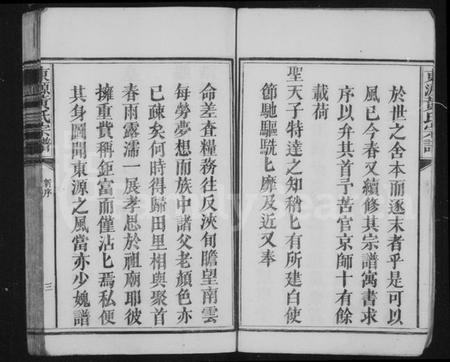 東源黃氏宗譜
於世之舍本而逐末者乎是可以
風已今春又續修其宗譜寓書求
序以弁其首予苦官京師十有餘
載荷
聖天子特達之知稍匕有所建白使
節馳驅匕靡及近又奉
命差查糧務往反浹旬瞻望南雲
每勞夢想而族中諸父老顏色亦
已疎矣何時得歸田里相與聚首
春雨露濡一展孝思於祖廟耶彼
擁重貲稱鉅富而僅沾匕焉私便
其身圖聞東源之風當亦少媿譜
東源黃氏宗譜
序
三